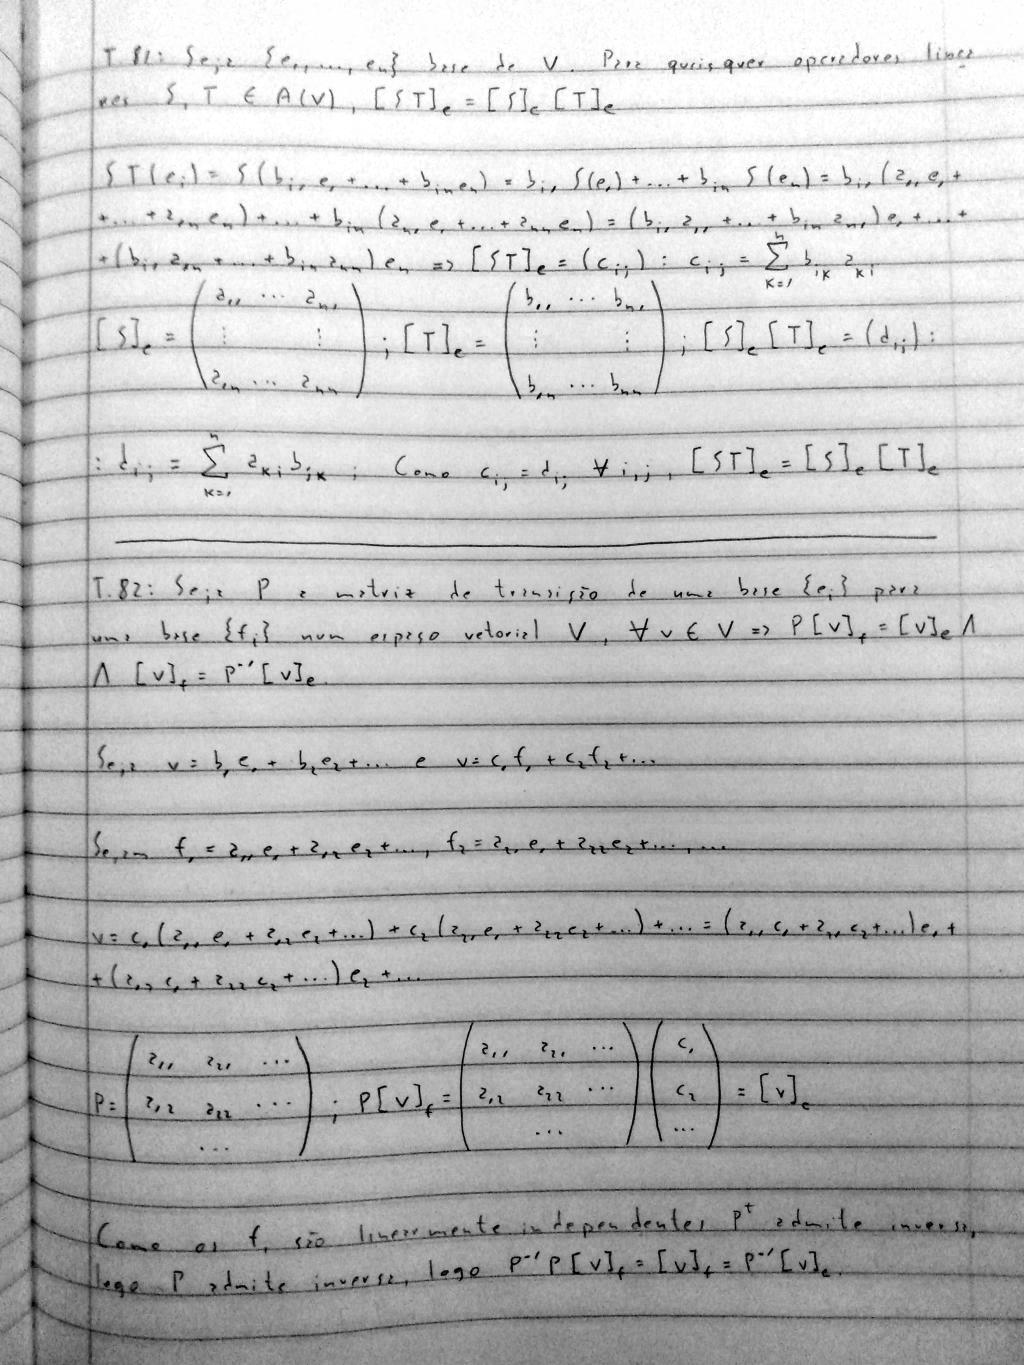 T.81: Seja {e₁, ..., eₙ} base de V. Para quaisquer operadores linea
res S, T ∈ A(V), [ST]ₑ = [S]ₑ [T]ₑ
ST(eᵢ) = S(bᵢ₁ e₁ + ... + bᵢₙ eₙ) = bᵢ₁ S(e₁) + ... + bᵢₙ S(eₙ) = bᵢ₁ (a₁₁ e₁ +
+ ... + a₁ₙ eₙ) + ... + bᵢₙ (aₙ₁ e₁ + ... + aₙₙ eₙ) = (bᵢ₁ a₁₁ + ... + bᵢₙ aₙ₁) e₁ + ... +
+ (bᵢ₁ a₁ₙ + ... + bᵢₙ aₙₙ) eₙ => [ST]ₑ = (cᵢⱼ) : cᵢⱼ = Σₖ₌₁ⁿ bⱼₖ aₖᵢ
[S]ₑ = (a₁₁ ... aₙ₁ ⋮ ⋮ a₁ₙ ... aₙₙ) ; [T]ₑ = (b₁₁ ... bₙ₁ ⋮ ⋮ b₁ₙ ... bₙₙ) ; [S]ₑ [T]ₑ = (dᵢⱼ) :
: dᵢⱼ = Σₖ₌₁ⁿ aₖᵢ bⱼₖ ; Como cᵢⱼ = dᵢⱼ ∀ i,j, [ST]ₑ = [S]ₑ [T]ₑ
T.82: Seja P a matriz de transição de uma base {eᵢ} para
uma base {fᵢ} num espaço vetorial V, ∀ v ∈ V => P[v]_f = [v]ₑ ∧
∧ [v]_f = P⁻¹[v]ₑ.
Seja v = b₁ e₁ + b₂ e₂ + ... e v = c₁ f₁ + c₂ f₂ + ...
Sejam f₁ = a₁₁ e₁ + a₁₂ e₂ + ..., f₂ = a₂₁ e₁ + a₂₂ e₂ + ..., ...
v = c₁ (a₁₁ e₁ + a₁₂ e₂ + ...) + c₂ (a₂₁ e₁ + a₂₂ e₂ + ...) + ... = (a₁₁ c₁ + a₂₁ c₂ + ...) e₁ +
+ (a₁₂ c₁ + a₂₂ c₂ + ...) e₂ + ...
P = (a₁₁ a₂₁ ... a₁₂ a₂₂ ... ...) ; P[v]_f = (a₁₁ a₂₁ ... a₁₂ a₂₂ ... ...) (c₁ c₂ ...) = [v]ₑ
Como os fᵢ são linearmente independentes Pᵗ admite inversa,
logo P admite inversa, logo P⁻¹P[v]_f = [v]_f = P⁻¹[v]ₑ.